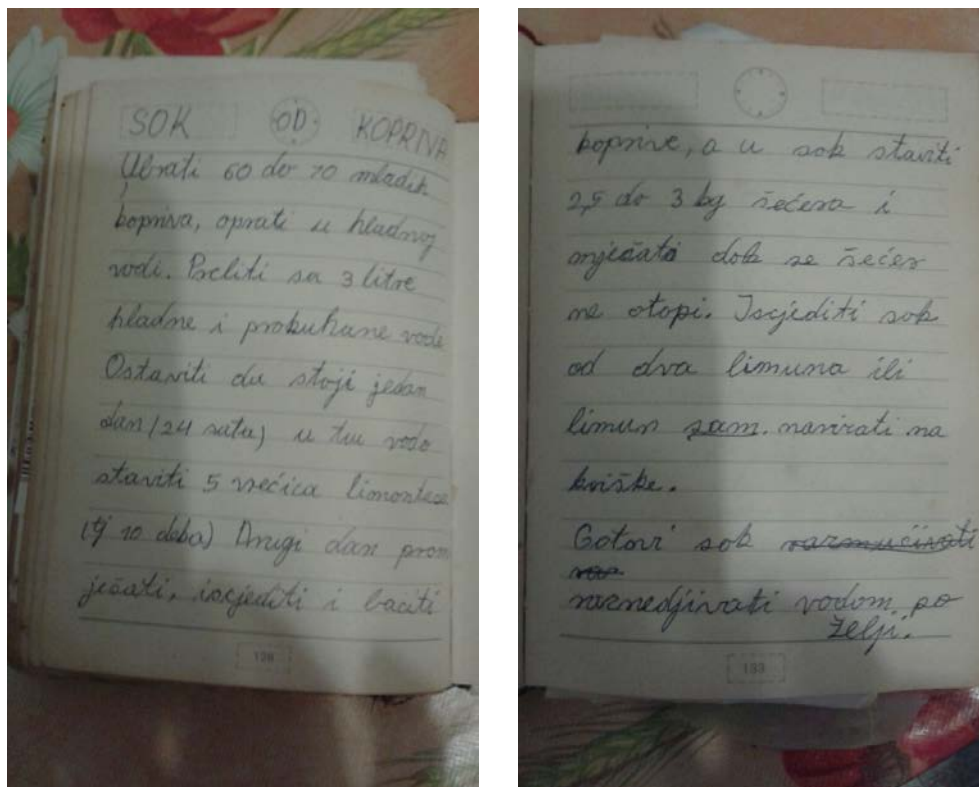 SOK OD KOPRIVA
Ubrati 60 do 70 mladih
kopriva, oprati u hladnoj
vodi. Preliti sa 3 litre
hladne i prokuhane vode
Ostaviti da stoji jedan
dan (24 sata) u tu vodo
staviti 5 vrećica limontusa
(tj 10 deka) Drugi dan prom
ješati, iscjediti i baciti
138
koprive, a u sok staviti
2,5 do 3 kg šećera i
mješati dok se šećer
ne otopi. Iscjediti sok
od dva limuna ili
limun sam. narezati na
kriške.
Gotovi sok razmućivati
raz
razredjivati vodom po
želji.
139